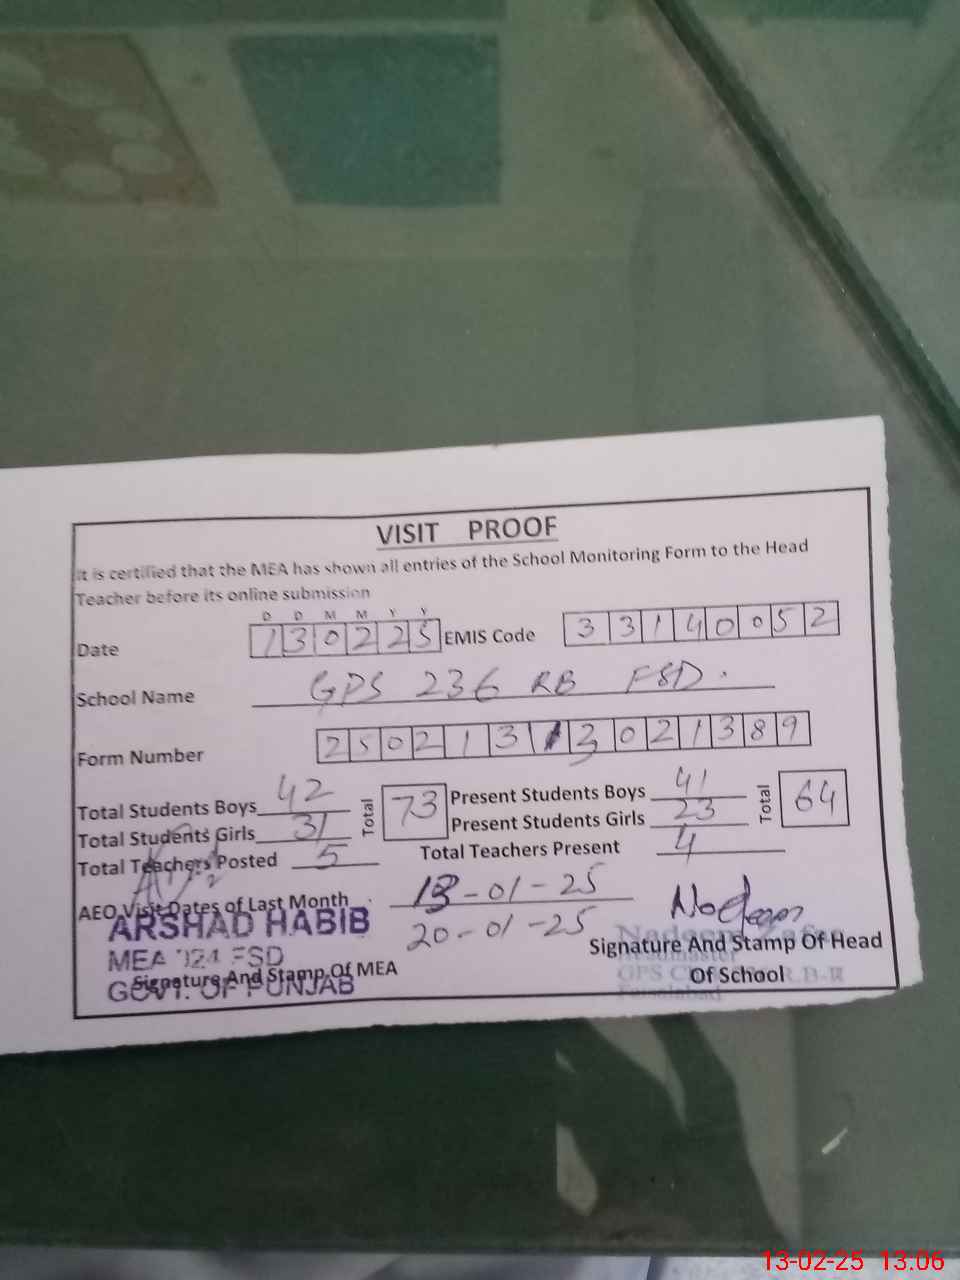 VISIT PROOF
It is certified that the MEA has shown all entries of the School Monitoring Form to the Head
Teacher before its online submission
D D M M Y Y
Date 1 3 0 2 2 5 EMIS Code 3 3 1 4 0 0 5 2
School Name GPS 236 RB FSD.
Form Number 2 5 0 2 1 3 1 3 0 2 1 3 8 9
Total Students Boys 42 Total 73 Present Students Boys 41 Total 64
Total Students Girls 31 Present Students Girls 23
Total Teachers Posted 5 Total Teachers Present 4
AEO Visit Dates of Last Month 13-01-25
20-01-25
ARSHAD HABIB
MEA 124 FSD
GOVT. OF PUNJAB
Signature And Stamp Of MEA
Nadeem
Signature And Stamp Of Head
Of School
GPS
R.B-II
Faisalabad
13-02-25 13.06